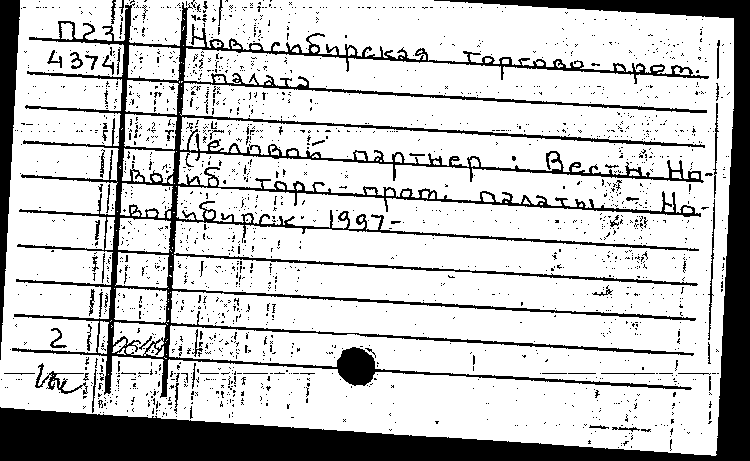 П23 Новосибирская торгово-пром.
4374 палата
Деловой партнер : Вестн. Но-
восиб. торг.-пром. палаты. - Но-
восибирск, 1997-
2